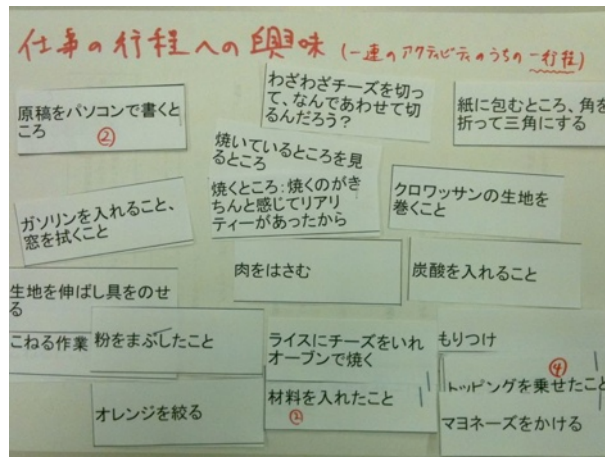 仕事の行程への興味(一連のアクティビティのうちの一行程)
原稿をパソコンで書くと
ころ
②
わざわざチーズを切っ
て、なんであわせて切
るんだろう?
紙に包むところ、角を
折って三角にする
焼いているところを見
るところ
焼くところ:焼くのがき
ちんと感じてリアリ
ティーがあったから
クロワッサンの生地を
巻くこと
ガソリンを入れること、
窓を拭くこと
肉をはさむ
炭酸を入れること
生地を伸ばし具をのせ
る
こねる作業
粉をまぶしたこと
ライスにチーズをいれ
オーブンで焼く
もりつけ
④
トッピングを乗せたこと
オレンジを絞る
材料を入れたこと
②
マヨネーズをかける